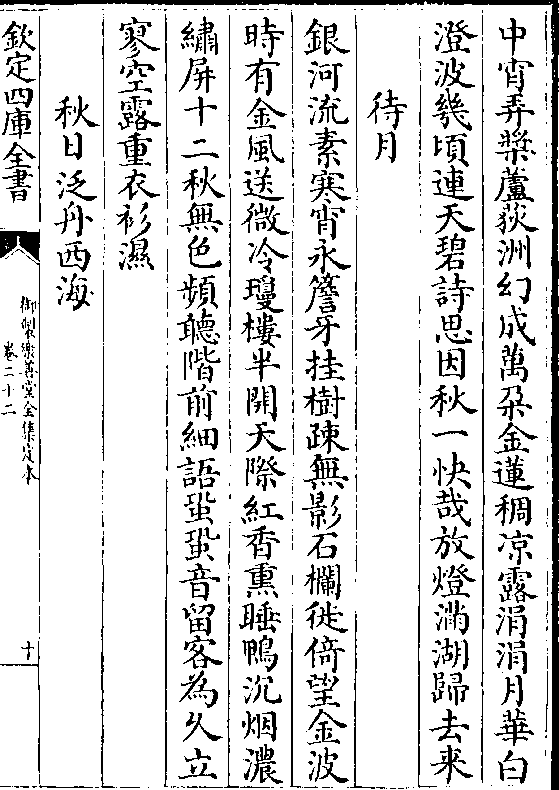 中宵弄槳蘆荻洲幻成萬朶金蓮稠凉露涓涓月華白
澄波幾頃連天碧詩思因秋一快哉放燈滿湖歸去来
待月
銀河流素寒宵永簷牙挂樹疎無影石欄徙倚望金波
時有金風送微冷瓊樓半開天際紅香熏睡鴨沉烟濃
繡屏十二秋無色頻聽階前細語蛩蛩音留客為久立
寥空露重衣衫濕
秋日泛舟西海
欽定四庫全書
御製樂善堂全集定本
卷二十二
十